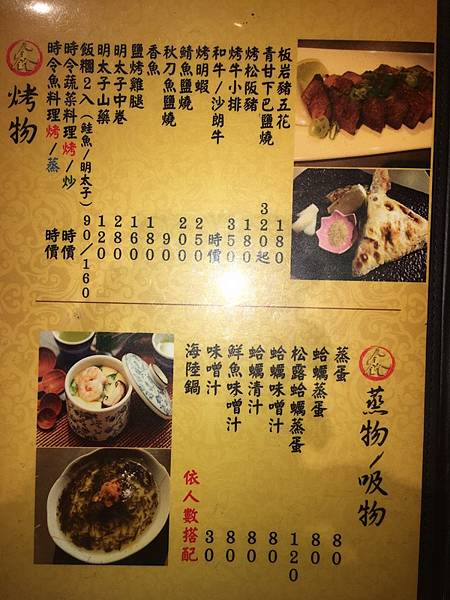 烤物
板岩豬五花 180
青甘下巴鹽燒 320起
烤松阪豬 180
烤牛小排 350
和牛/沙朗牛 時價
烤明蝦 250
鯖魚鹽燒 200
秋刀魚鹽燒 90
香魚 180
鹽烤雞腿 160
明太子中卷 280
明太子山藥 120
飯糰2入(鮭魚/明太子) 90/160
時令蔬菜料理烤/炒 時價
時令魚料理烤/蒸 時價
蒸物/吸物
蒸蛋 80
蛤蠣蒸蛋 80
松露蛤蠣蒸蛋 120
蛤蠣味噌汁 80
蛤蠣清汁 80
鮮魚味噌汁 80
味噌汁 30
海陸鍋 依人數搭配